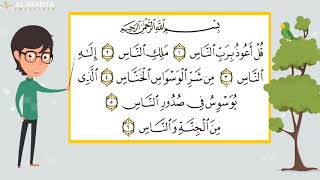 AL ARABIYA
بِسْمِ اللَّهِ الرَّحْمَٰنِ الرَّحِيمِ
قُلْ أَعُوذُ بِرَبِّ النَّاسِ ١ مَلِكِ النَّاسِ ٢ إِلَٰهِ
النَّاسِ ٣ مِن شَرِّ الْوَسْوَاسِ الْخَنَّاسِ ٤ الَّذِي
يُوَسْوِسُ فِي صُدُورِ النَّاسِ ٥
مِنَ الْجِنَّةِ وَالنَّاسِ ٦